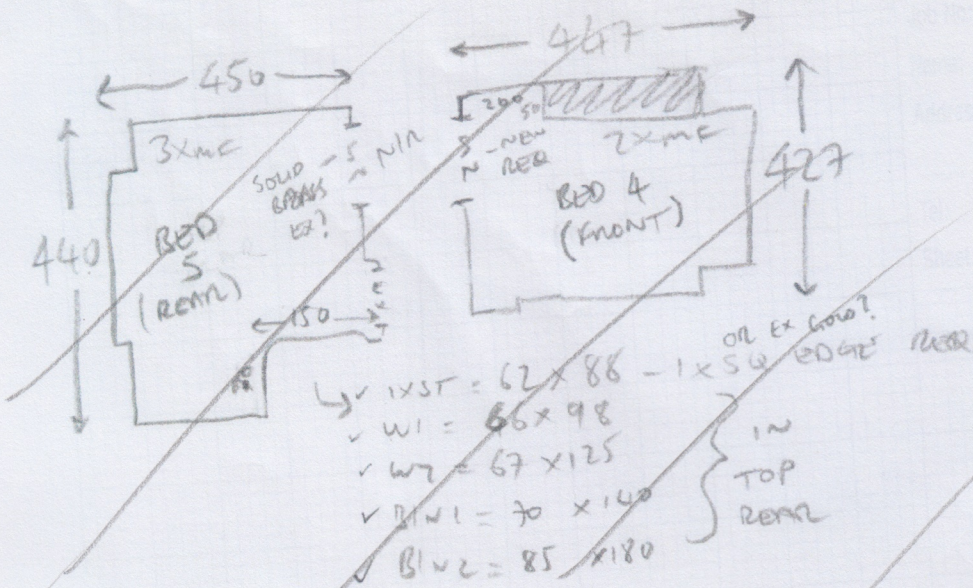 450
447
3xMF
200
50
2xMF
N/R
SOLID
BRASS
EX?
S
N - NEW
REQ
427
BED
5
(REAR)
BED 4
(FRONT)
440
150
OR EX GOLD?
✓ 1XST = 62 x 88 - 1 x SQ EDGE REQ
✓ W1 = 66 x 98
✓ W2 = 67 x 125
✓ B/N1 = 70 x 140
✓ B/N2 = 85 x 180
IN
TOP
REAR